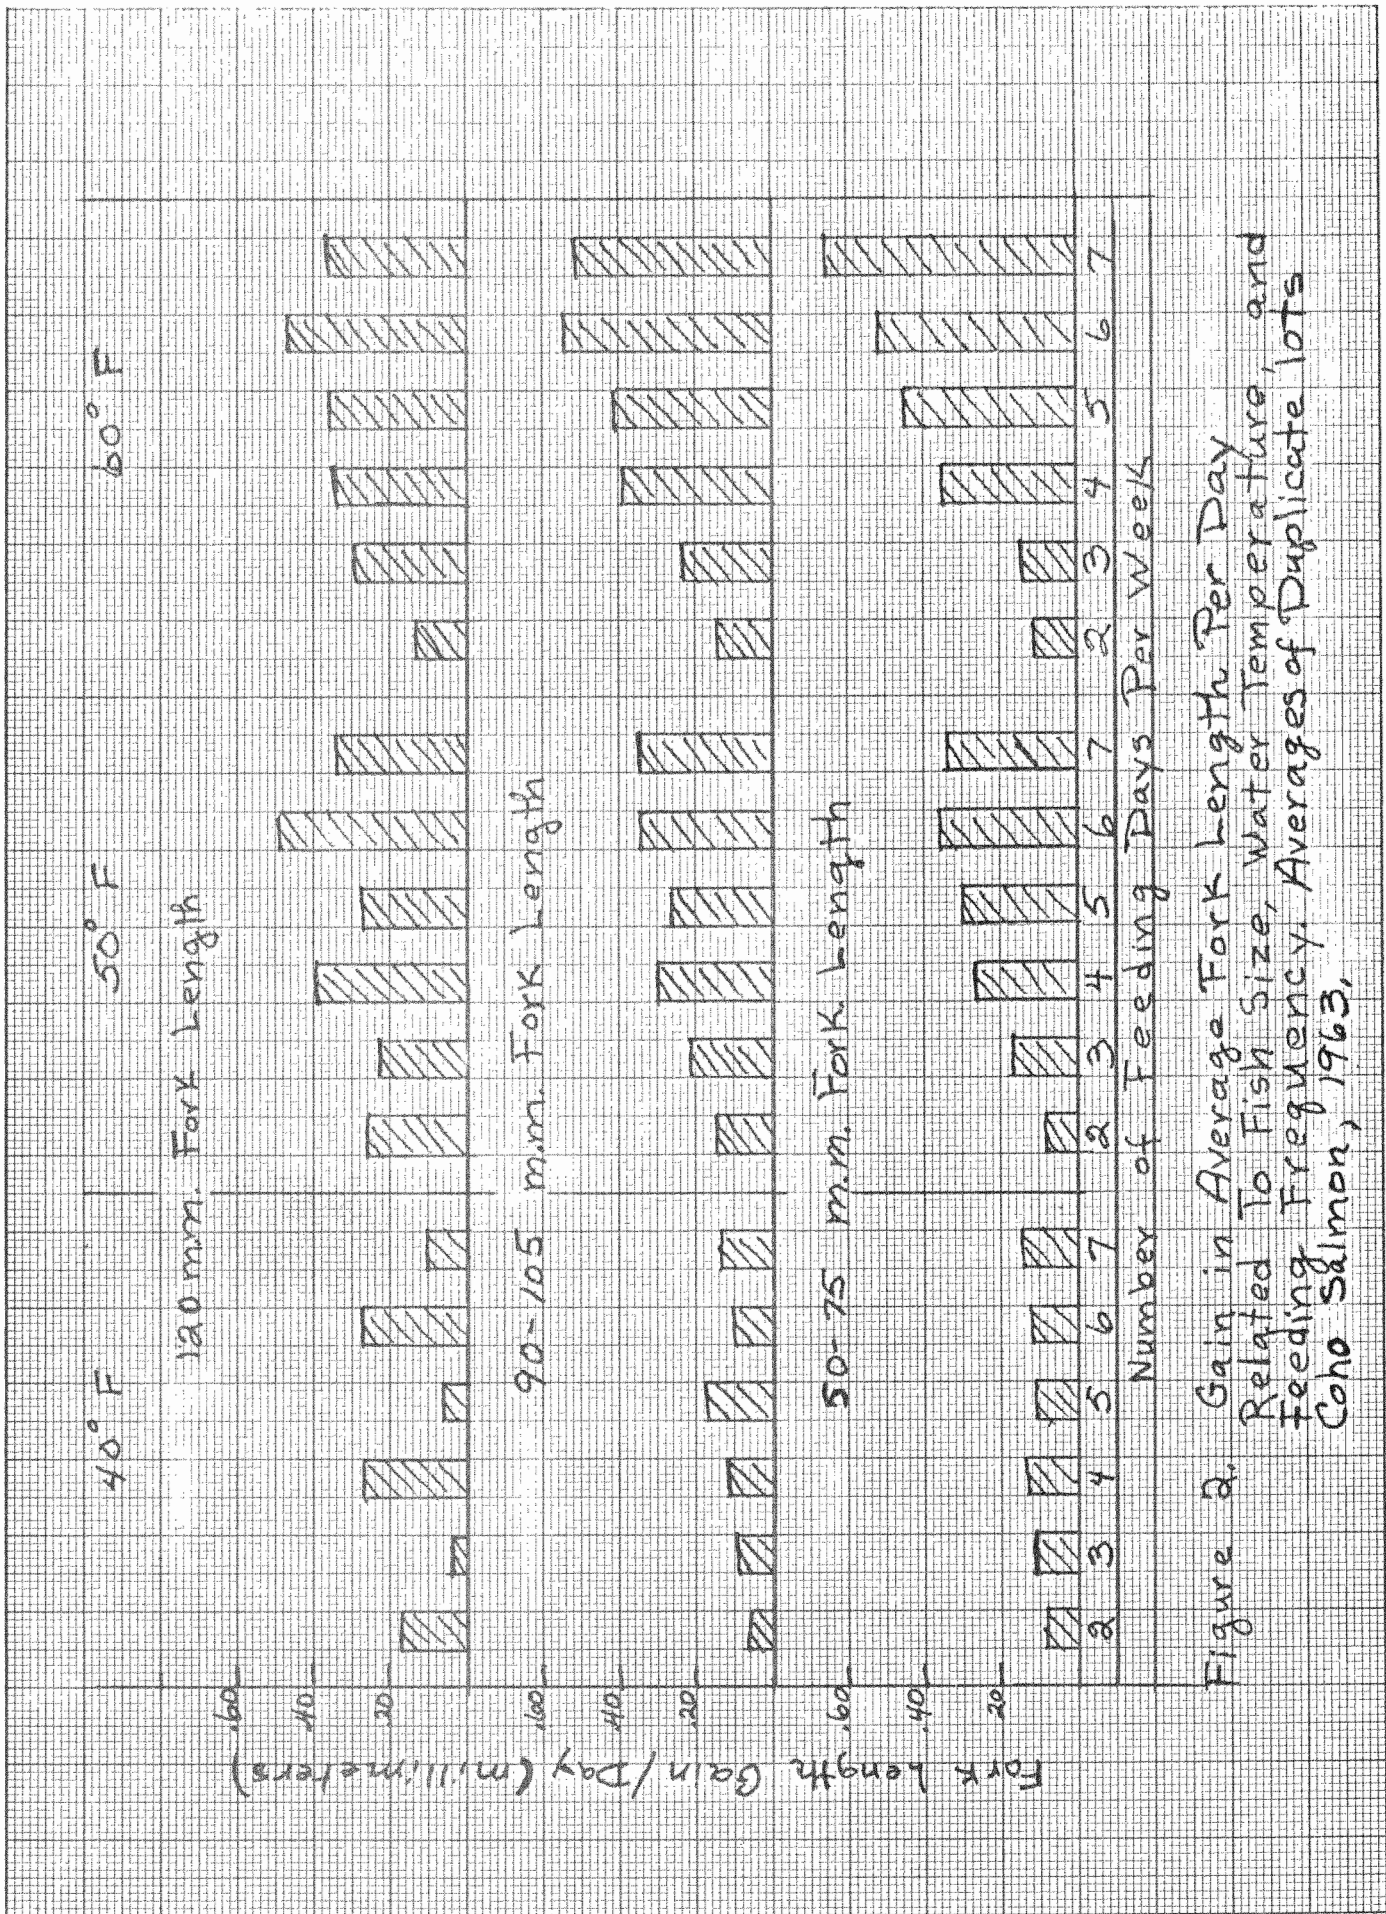 40° F 50° F 60° F
120 m.m. Fork Length
.60
.40
.20
90-105 m.m. Fork Length
.60
.40
.20
50-75 m.m. Fork Length
.60
.40
.20
Fork Length Gain/Day (millimeters)
2 3 4 5 6 7 2 3 4 5 6 7 2 3 4 5 6 7
Number of Feeding Days Per Week
Figure 2. Gain in Average Fork Length Per Day
Related To Fish Size, Water Temperature, and
Feeding Frequency. Averages of Duplicate loTs
Coho Salmon, 1963.